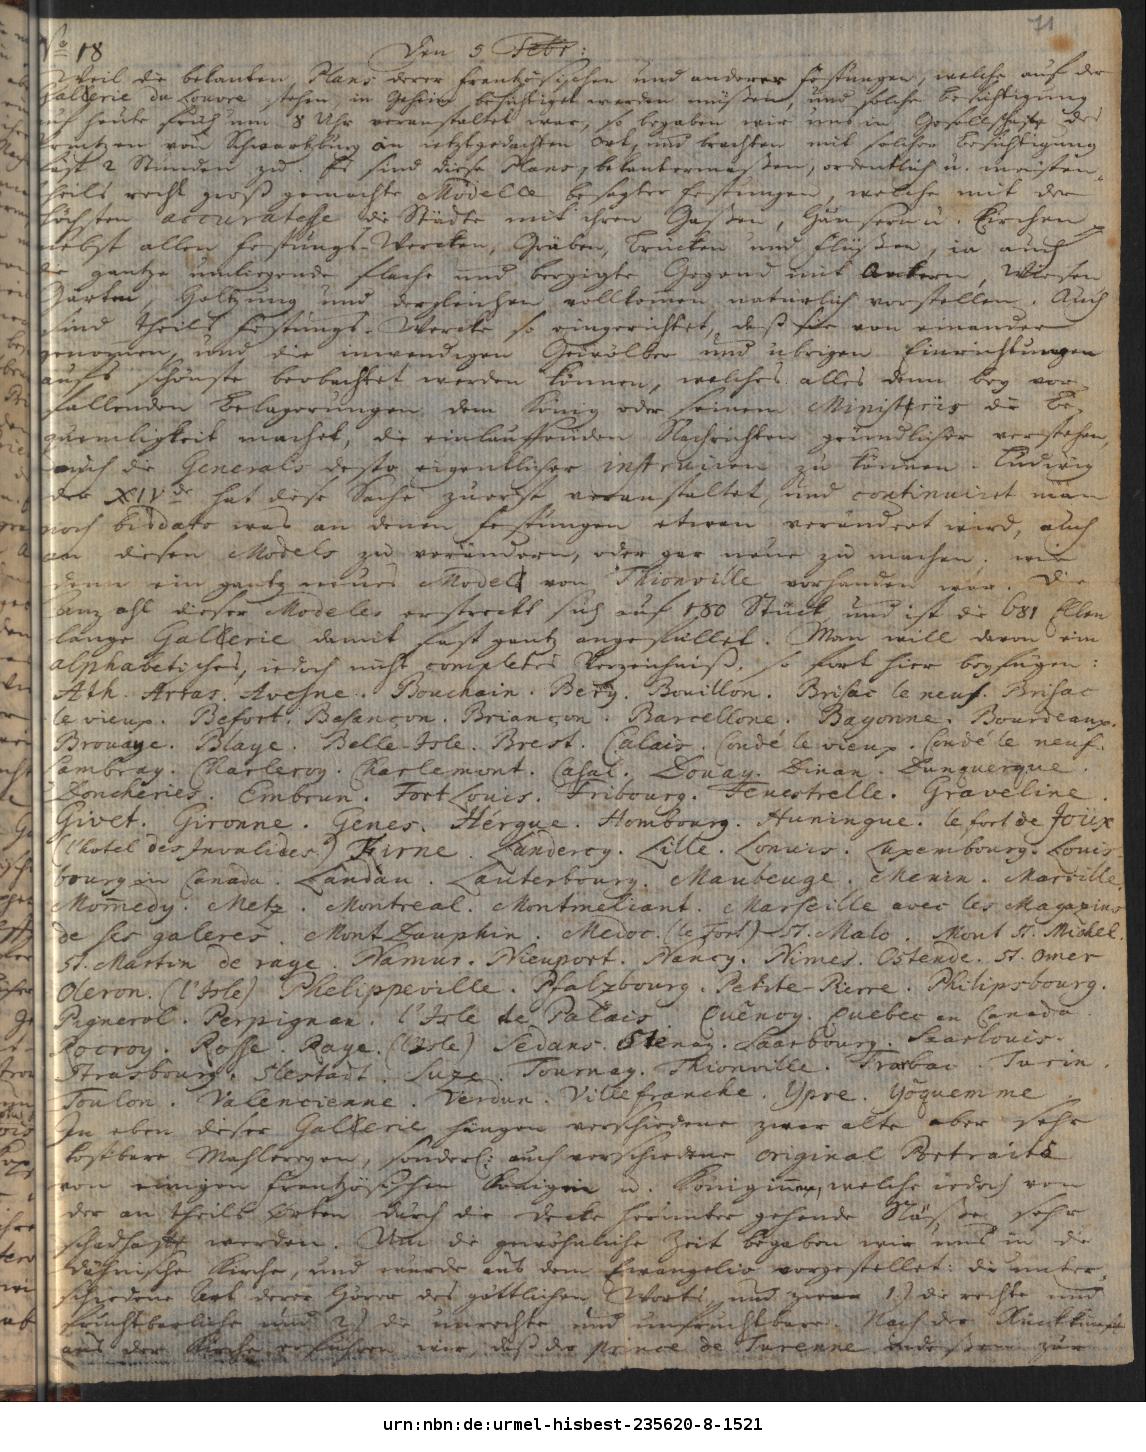 71
No 18 Den 5 Febr:
Weil die bekanten Plans derer Frantzösischen und anderer Festungen, welche auf der
Gallerie du Louvre stehen, in Geheim besichtiget werden müßen, und solche Besichtigung
auf heute früh um 8 Uhr veranstaltet war, so begaben wir uns in Gesellschafft des
Printzen von Schwartzburg an jetztgedachten Ort, und brachten mit solcher Besichtigung
fast 2 Stunden zu. Es sind diese Plans, bekantermaßen, ordentlich u. meisten-
theils recht groß gemachte Modelle besagter Festungen, welche mit der
höchsten accuratesse die Städte mit ihren Gaßen, Häusern u. Kirchen
nebst allen Festungs-Wercken, Gräben, Brücken und Flüßen, ja auch
die gantze umliegende flache und bergigte Gegend mit Ackern, Wiesen
Gärten, Holtzung und dergleichen vollkomen natürlich vorstellen. Auch
sind theils Festungs-Wercke so eingerichtet, daß sie von einander
genommen, und die inwendigen Gewölber und übrigen Einrichtungen
aufs schönste beobachtet werden können, welches alles denn bey vor-
fallenden Belagerungen dem König oder seinem Ministeris die Be-
quemligkeit machet, die einlauffenden Nachrichten gründlicher verstehen,
auch die Generals desto eigentlicher instruiren zu können. Ludwig
der XIVde hat diese Sache zuerst veranstaltet, und continuiret man
noch bis dato was an denen Festungen etwan verändert wird, auch
an diesen Models zu verändern, oder gar neue zu machen; wie
denn ein gantz neues Modell von Thionville vorhanden war. Die
Anzahl dieser Modeles erstreckt sich auf 180 Stück und ist die 681 Ellen
lange Gallerie damit fast gantz angefüllet. Man will davon ein
alphabetisches, jedoch nicht completes Verzeichniß, so fort hier beyfügen:
Ath. Arras. Avesne. Bouchain. Berg. Bouillon. Brisac le neuf. Brisac
le vieux. Befort. Besançon. Briançon. Barcellone. Bayonne. Bourdeaux.
Brouage. Blaye. Belle-Isle. Brest. Calais. Condé le vieux. Condé le neuf.
Cambray. Charleroy. Charlemont. Casal. Douay. Dinan. Dunquerque.
Doncheries. Embrun. Fort Louis. Fribourg. Fenestrelle. Graveline.
Givet. Gironne. Genes. Hérgue. Hombourg. Huningue. le fort de Joux
(l'hotel des Invalides) Kirne. Landercy. Lille. Lonwis. Luxembourg. Louis-
bourg in Canada. Landau. Lauterbourg. Maubeuge. Menin. Marville.
Momedy. Metz. Montreal. Montmeliant. Marseille avec les Magazins
de ses galeres. Mont Dauphin. Medoc. (le Fort) St. Malo. Mont St. Michel.
St. Martin de rage. Namur. Nieuport. Nancy. Nimes. Ostende. St. Omer
Oleron. (l'Isle) Phelippeville. Pfalzbourg. Petite-Pierre. Philipsbourg.
Pignerol. Perpignan. l'Isle de Palais. Quênoy. Quebec en Canada.
Rocroy. Rosse. Raye. (l'Isle) Sedans. Stenay. Saarbourg. Saarlouis.
Strasbourg. Slestadt. Suze. Tournay. Thionville. Trarbac. Turin.
Toulon. Valencienne. Verdun. Villefranche. Ypre. Yöquemme
In eben dieser Gallerie hängen verschiedene zwar alte aber sehr
kostbare Mahlereyen, sonderl: auch verschiedene original Portraits
von einigen Frantzösischen Königen u. Königinnen, welche jedoch von
der an theils Orten durch die Decke herunter gehende Näße sehr
schadhafft werden. Um die gewöhnliche Zeit begaben wir uns in die
Dähnische Kirche, und wurde aus dem Evangelio vorgestellet: die unter-
schiedene Art derer Hörer des göttlichen Worts, und zwar 1.) die rechte und
fruchtbarliche und 2.) die unrechte und unfruchtbare. Nach der Rückkunft
aus der Kirche erfuhren wir, daß der Prince de Turenne zur
urn:nbn:de:urmel-hisbest-235620-8-1521